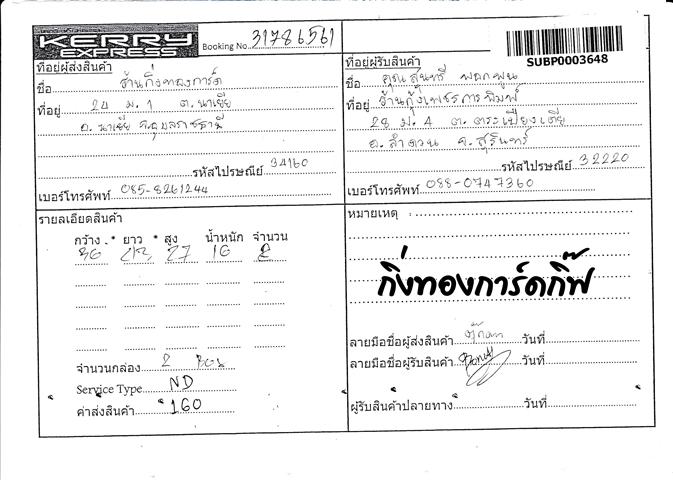 KERRY
EXPRESS
Booking No. 31786561
SUBP0003648
ที่อยู่ผู้ส่งสินค้า
ชื่อ ร้านกิ่งทองการ์ด
ที่อยู่ 24 ม.1 ต.นาเยีย
อ.นาเยีย จ.อุบลราชธานี
รหัสไปรษณีย์ 34160
เบอร์โทรศัพท์ 085-8261244
ที่อยู่ผู้รับสินค้า
ชื่อ คุณสุนทรี
ที่อยู่ ร้านกุ้งเพชรการพิมพ์
28 ม.4 ต.ตระเปียงเตีย
อ.ลำดวน จ.สุรินทร์
รหัสไปรษณีย์ 32220
เบอร์โทรศัพท์ 088-0747360
รายละเอียดสินค้า
กว้าง * ยาว * สูง น้ำหนัก จำนวน
36 43 27 16 2
จำนวนกล่อง 2 Box
Service Type ND
ค่าส่งสินค้า 160
หมายเหตุ :
กิ่งทองการ์ดกิ๊ฟ
ลายมือชื่อผู้ส่งสินค้า วันที่
ลายมือชื่อผู้รับสินค้า วันที่
ผู้รับสินค้าปลายทาง วันที่